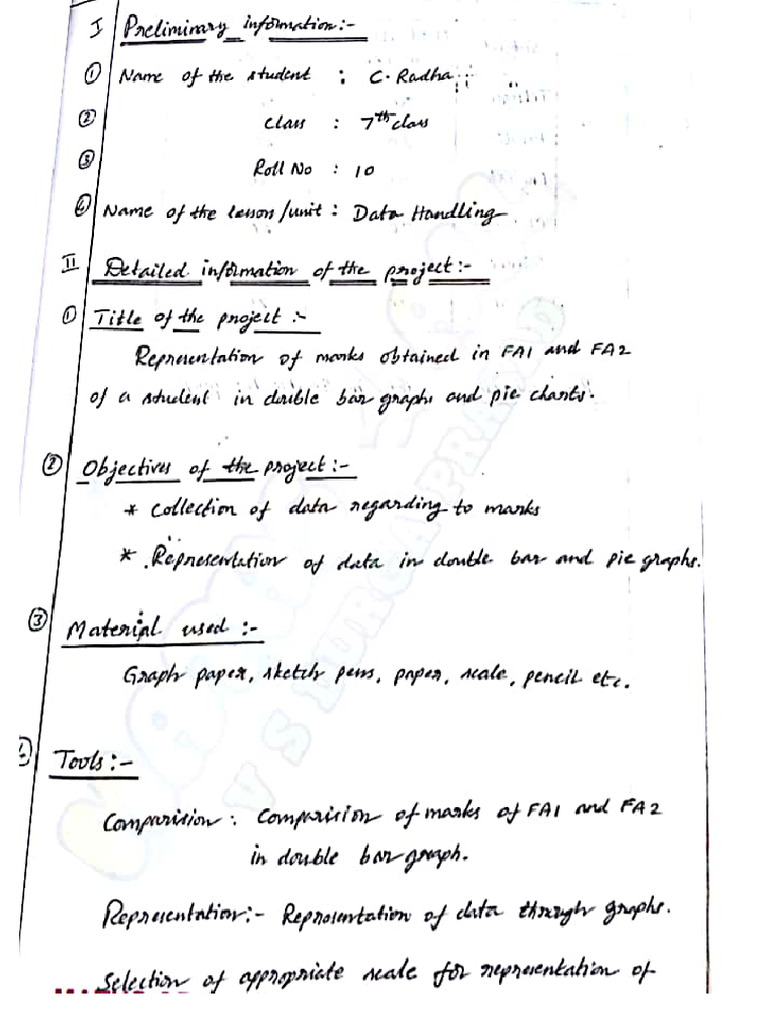 I Preliminary information:-
① Name of the student : C. Radha
② Class : 7th class
③ Roll No : 10
④ Name of the lesson/unit : Data Handling
II Detailed information of the project:-
① Title of the project :-
Representation of marks obtained in FA1 and FA2
of a student in double bar graphs and pie charts.
② Objectives of the project:-
* Collection of data regarding to marks
* Representation of data in double bar and pie graphs.
③ Material used :-
Graph paper, sketch pens, paper, scale, pencil etc.
Tools:-
Comparision : Comparision of marks of FA1 and FA2
in double bar graph.
Representation:- Representation of data through graphs.
Selection of appropriate scale for representation of
V S DURGA PRASAD